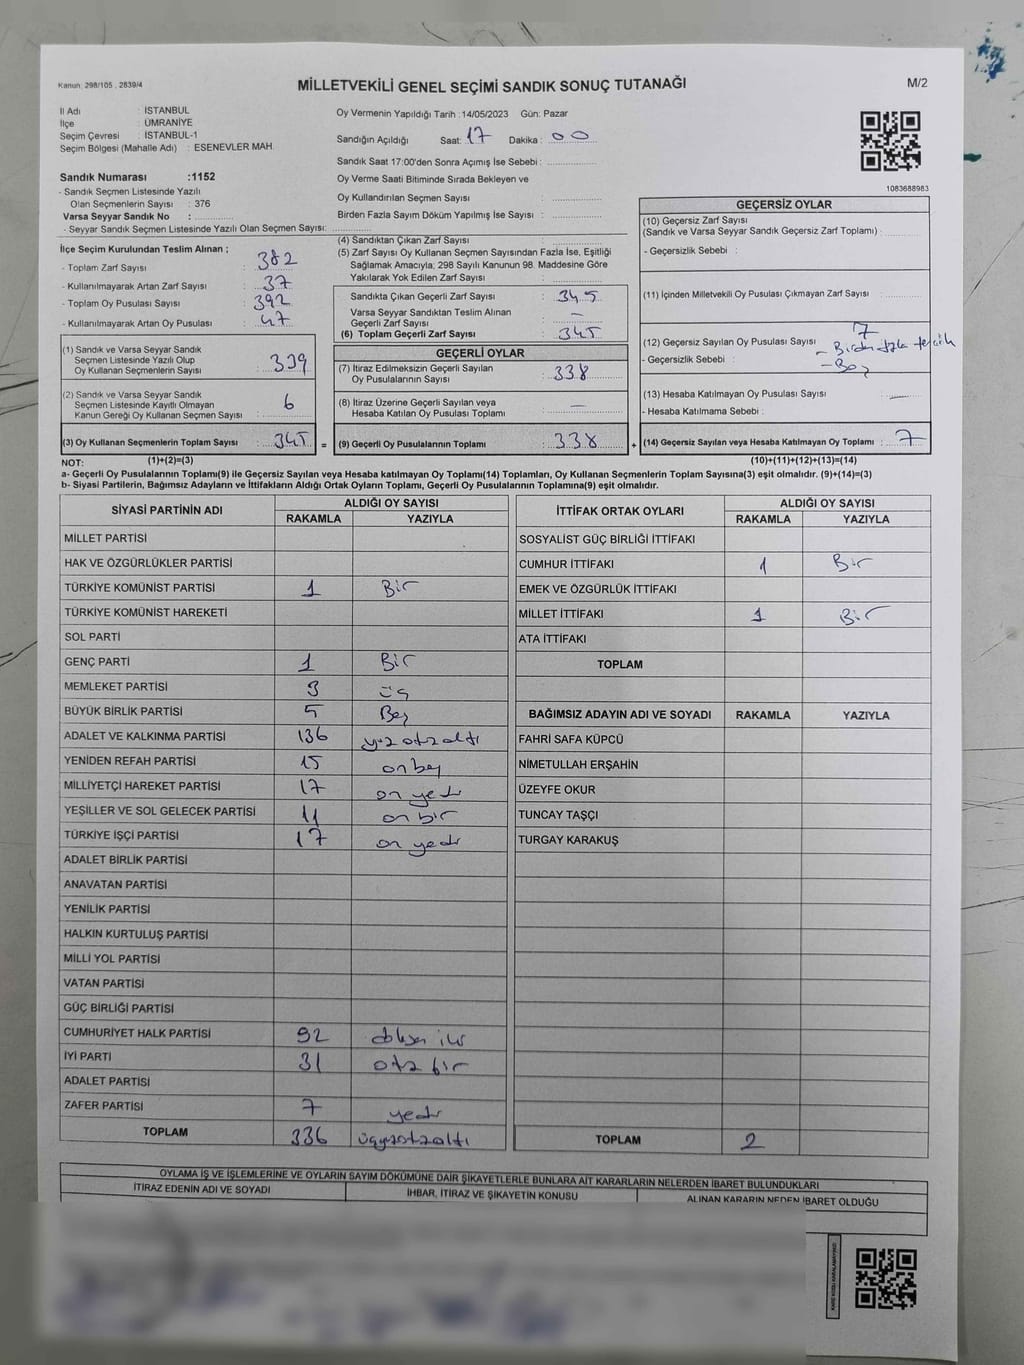 Kanun: 298/105 , 2839/4
MİLLETVEKİLİ GENEL SEÇİMİ SANDIK SONUÇ TUTANAĞI
M/2
İl Adı : İSTANBUL
İlçe : ÜMRANİYE
Seçim Çevresi : İSTANBUL-1
Seçim Bölgesi (Mahalle Adı) : ESENEVLER MAH.
Oy Vermenin Yapıldığı Tarih :14/05/2023 Gün: Pazar
Sandığın Açıldığı Saat: 17 Dakika : 00
Sandık Saat 17:00'den Sonra Açımış İse Sebebi :
Sandık Numarası :1152
- Sandık Seçmen Listesinde Yazılı
Olan Seçmenlerin Sayısı : 376
Varsa Seyyar Sandık No :
- Seyyar Sandık Seçmen Listesinde Yazılı Olan Seçmen Sayısı:
Oy Verme Saati Bitiminde Sırada Bekleyen ve
Oy Kullandırılan Seçmen Sayısı :
Birden Fazla Sayım Döküm Yapılmış İse Sayısı :
1083688983
İlçe Seçim Kurulundan Teslim Alınan ;
- Toplam Zarf Sayısı : 382
- Kullanılmayarak Artan Zarf Sayısı : 37
- Toplam Oy Pusulası Sayısı : 392
- Kullanılmayarak Artan Oy Pusulası : 47
(1) Sandık ve Varsa Seyyar Sandık
Seçmen Listesinde Yazılı Olup
Oy Kullanan Seçmenlerin Sayısı : 339
(2) Sandık ve Varsa Seyyar Sandık
Seçmen Listesinde Kayıtlı Olmayan
Kanun Gereği Oy Kullanan Seçmen Sayısı : 6
(3) Oy Kullanan Seçmenlerin Toplam Sayısı : 345 =
(1)+(2)=(3)
(4) Sandıktan Çıkan Zarf Sayısı :
(5) Zarf Sayısı Oy Kullanan Seçmen Sayısından Fazla İse, Eşitliği
Sağlamak Amacıyla; 298 Sayılı Kanunun 98. Maddesine Göre
Yakılarak Yok Edilen Zarf Sayısı :
Sandıkta Çıkan Geçerli Zarf Sayısı : 345
Varsa Seyyar Sandıktan Teslim Alınan
Geçerli Zarf Sayısı : -
(6) Toplam Geçerli Zarf Sayısı : 345
GEÇERLİ OYLAR
(7) İtiraz Edilmeksizin Geçerli Sayılan
Oy Pusulalarının Sayısı : 338
(8) İtiraz Üzerine Geçerli Sayılan veya
Hesaba Katılan Oy Pusulası Toplamı : -
(9) Geçerli Oy Pusulalarının Toplamı : 338 +
GEÇERSİZ OYLAR
(10) Geçersiz Zarf Sayısı
(Sandık ve Varsa Seyyar Sandık Geçersiz Zarf Toplamı) :
- Geçersizlik Sebebi :
(11) İçinden Milletvekili Oy Pusulası Çıkmayan Zarf Sayısı :
(12) Geçersiz Sayılan Oy Pusulası Sayısı : 7
- Geçersizlik Sebebi : - Birden fazla tercih
- Boş
(13) Hesaba Katılmayan Oy Pusulası Sayısı : -
- Hesaba Katılmama Sebebi :
(14) Geçersiz Sayılan veya Hesaba Katılmayan Oy Toplamı : 7
(10)+(11)+(12)+(13)=(14)
NOT:
a- Geçerli Oy Pusulalarının Toplamı(9) ile Geçersiz Sayılan veya Hesaba katılmayan Oy Toplamı(14) Toplamları, Oy Kullanan Seçmenlerin Toplam Sayısına(3) eşit olmalıdır. (9)+(14)=(3)
b- Siyasi Partilerin, Bağımsız Adayların ve İttifakların Aldığı Ortak Oyların Toplamı, Geçerli Oy Pusulalarının Toplamına(9) eşit olmalıdır.
SİYASİ PARTİNİN ADI ALDIĞI OY SAYISI
RAKAMLA YAZIYLA
MİLLET PARTİSİ
HAK VE ÖZGÜRLÜKLER PARTİSİ
TÜRKİYE KOMÜNİST PARTİSİ 1 Bir
TÜRKİYE KOMÜNİST HAREKETİ
SOL PARTİ
GENÇ PARTİ 1 Bir
MEMLEKET PARTİSİ 3 üç
BÜYÜK BİRLİK PARTİSİ 5 Beş
ADALET VE KALKINMA PARTİSİ 136 yüz otuz altı
YENİDEN REFAH PARTİSİ 15 on beş
MİLLİYETÇİ HAREKET PARTİSİ 17 on yedi
YEŞİLLER VE SOL GELECEK PARTİSİ 11 on bir
TÜRKİYE İŞÇİ PARTİSİ 17 on yedi
ADALET BİRLİK PARTİSİ
ANAVATAN PARTİSİ
YENİLİK PARTİSİ
HALKIN KURTULUŞ PARTİSİ
MİLLİ YOL PARTİSİ
VATAN PARTİSİ
GÜÇ BİRLİĞİ PARTİSİ
CUMHURİYET HALK PARTİSİ 92 doksan iki
İYİ PARTİ 31 otuz bir
ADALET PARTİSİ
ZAFER PARTİSİ 7 yedi
TOPLAM 336 üçyüzotuzaltı
İTTİFAK ORTAK OYLARI ALDIĞI OY SAYISI
RAKAMLA YAZIYLA
SOSYALİST GÜÇ BİRLİĞİ İTTİFAKI
CUMHUR İTTİFAKI 1 Bir
EMEK VE ÖZGÜRLÜK İTTİFAKI
MİLLET İTTİFAKI 1 Bir
ATA İTTİFAKI
TOPLAM
BAĞIMSIZ ADAYIN ADI VE SOYADI RAKAMLA YAZIYLA
FAHRİ SAFA KÜPCÜ
NİMETULLAH ERŞAHİN
ÜZEYFE OKUR
TUNCAY TAŞÇI
TURGAY KARAKUŞ
TOPLAM 2
OYLAMA İŞ VE İŞLEMLERİNE VE OYLARIN SAYIM DÖKÜMÜNE DAİR ŞİKAYETLERLE BUNLARA AİT KARARLARIN NELERDEN İBARET BULUNDUKLARI
İTİRAZ EDENİN ADI VE SOYADI İHBAR, İTİRAZ VE ŞİKAYETİN KONUSU ALINAN KARARIN NEDEN İBARET OLDUĞU